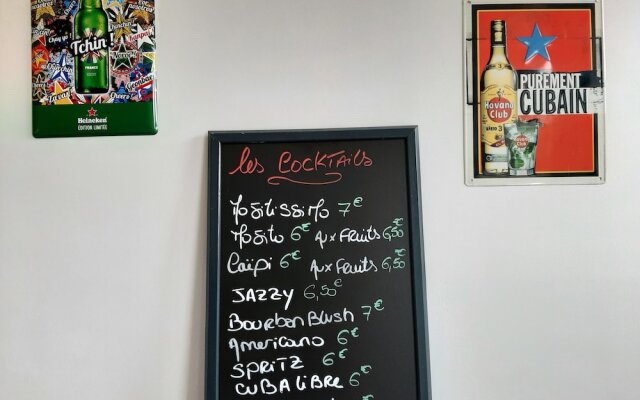 Tchin
FRANCE
Heineken
ÉDITION LIMITÉE
PUREMENT
CUBAIN
Havana
Club
AÑEJO 3
Les COCKTAILS
Mojitissimo 7€
Mojito 6€ Aux FRuits 6,50€
Caïpi 6€ Aux FRuits 6,50€
JAZZY 6,50€
Bourbon Blush 7€
Americano 6€
SPRITZ 6€
CUBA LiBRE 6€